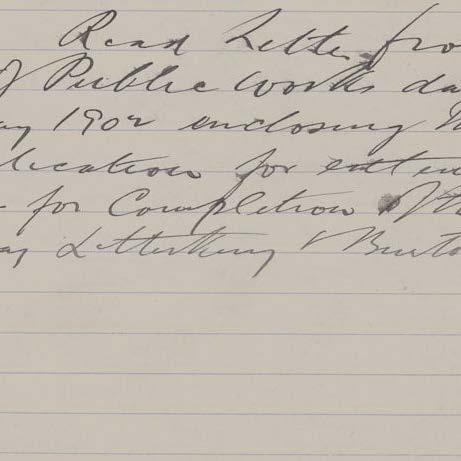 Read Letter fro
of Public Works da
ay 1902 enclosing
lication for exten
for Completion of th
ay Letterkenny & Burto